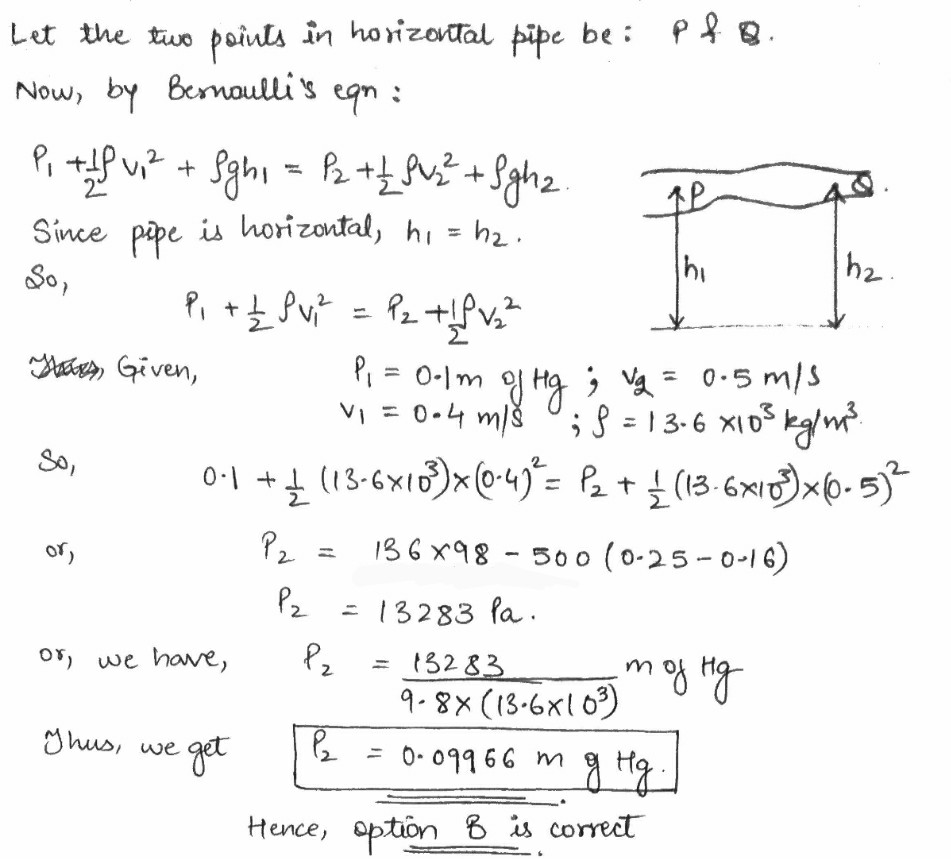 Let the two points in horizontal pipe be: P & Q.
Now, by Bernoulli's eqn:
P₁ + ½ρv₁² + ρgh₁ = P₂ + ½ρv₂² + ρgh₂.
Since pipe is horizontal, h₁ = h₂.
P
Q.
h₁
h₂.
So,
P₁ + ½ρv₁² = P₂ + ½ρv₂²
Given, P₁ = 0.1m of Hg ; v₂ = 0.5 m/s
v₁ = 0.4 m/s ; ρ = 13.6 ×10³ kg/m³.
So, 0.1 + ½ (13.6×10³)×(0.4)² = P₂ + ½ (13.6×10³)×(0.5)²
or, P₂ = 136×98 - 500 (0.25-0.16)
P₂ = 13283 Pa.
or, we have, P₂ = 13283 / 9.8×(13.6×10³) m of Hg
Thus, we get P₂ = 0.09966 m g Hg.
Hence, option B is correct